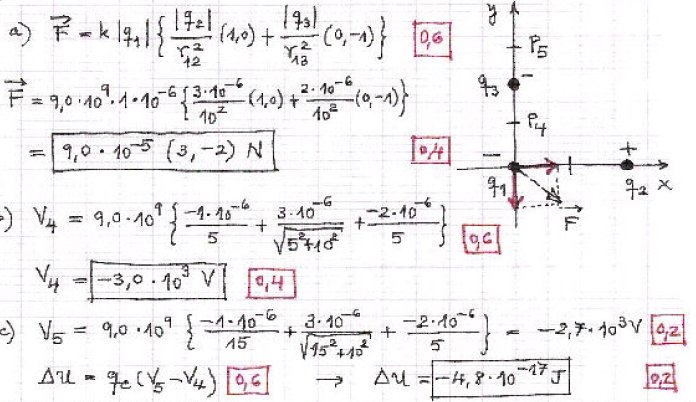 a) F⃗ = k |q₁| { |q₂|/r₁₂² (1,0) + |q₃|/r₁₃² (0,-1) } 0,6
F⃗ = 9,0·10⁹·1·10⁻⁶ { 3·10⁻⁶/10² (1,0) + 2·10⁻⁶/10² (0,-1) }
= 9,0·10⁻⁵ (3, -2) N 0,4
y
P₅
q₃ -
P₄
- +
q₁ q₂ x
F⃗
) V₄ = 9,0·10⁹ { -1·10⁻⁶/5 + 3·10⁻⁶/√(5²+10²) + -2·10⁻⁶/5 } 0,6
V₄ = -3,0·10³ V 0,4
c) V₅ = 9,0·10⁹ { -1·10⁻⁶/15 + 3·10⁻⁶/√(15²+10²) + -2·10⁻⁶/5 } = -2,7·10³ V 0,2
ΔU = qₑ (V₅ - V₄) 0,6 → ΔU = -4,8·10⁻¹⁷ J 0,2